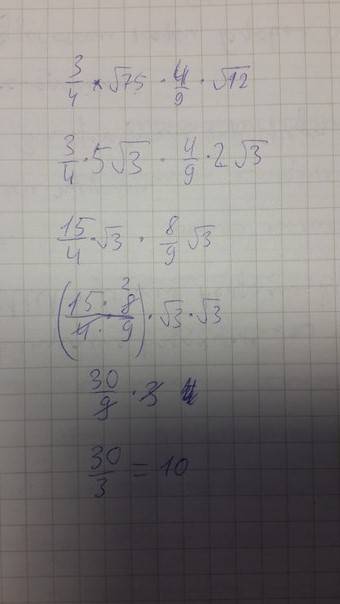 3/4 · √75 · 4/9 · √12
3/4 · 5√3 · 4/9 · 2√3
15/4 · √3 · 8/9 √3
(15 · 8 2 / 4 · 9) · √3 · √3
30/9 · 3
30/3 = 10